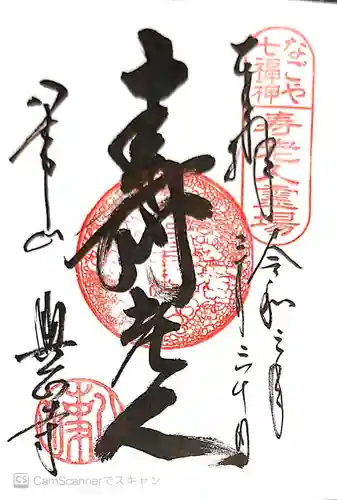 なごや
七福神
寿老人霊場
奉拝
令和三年
三月三十日
寿老人
八事山
興正寺
CS CamScannerでスキャン